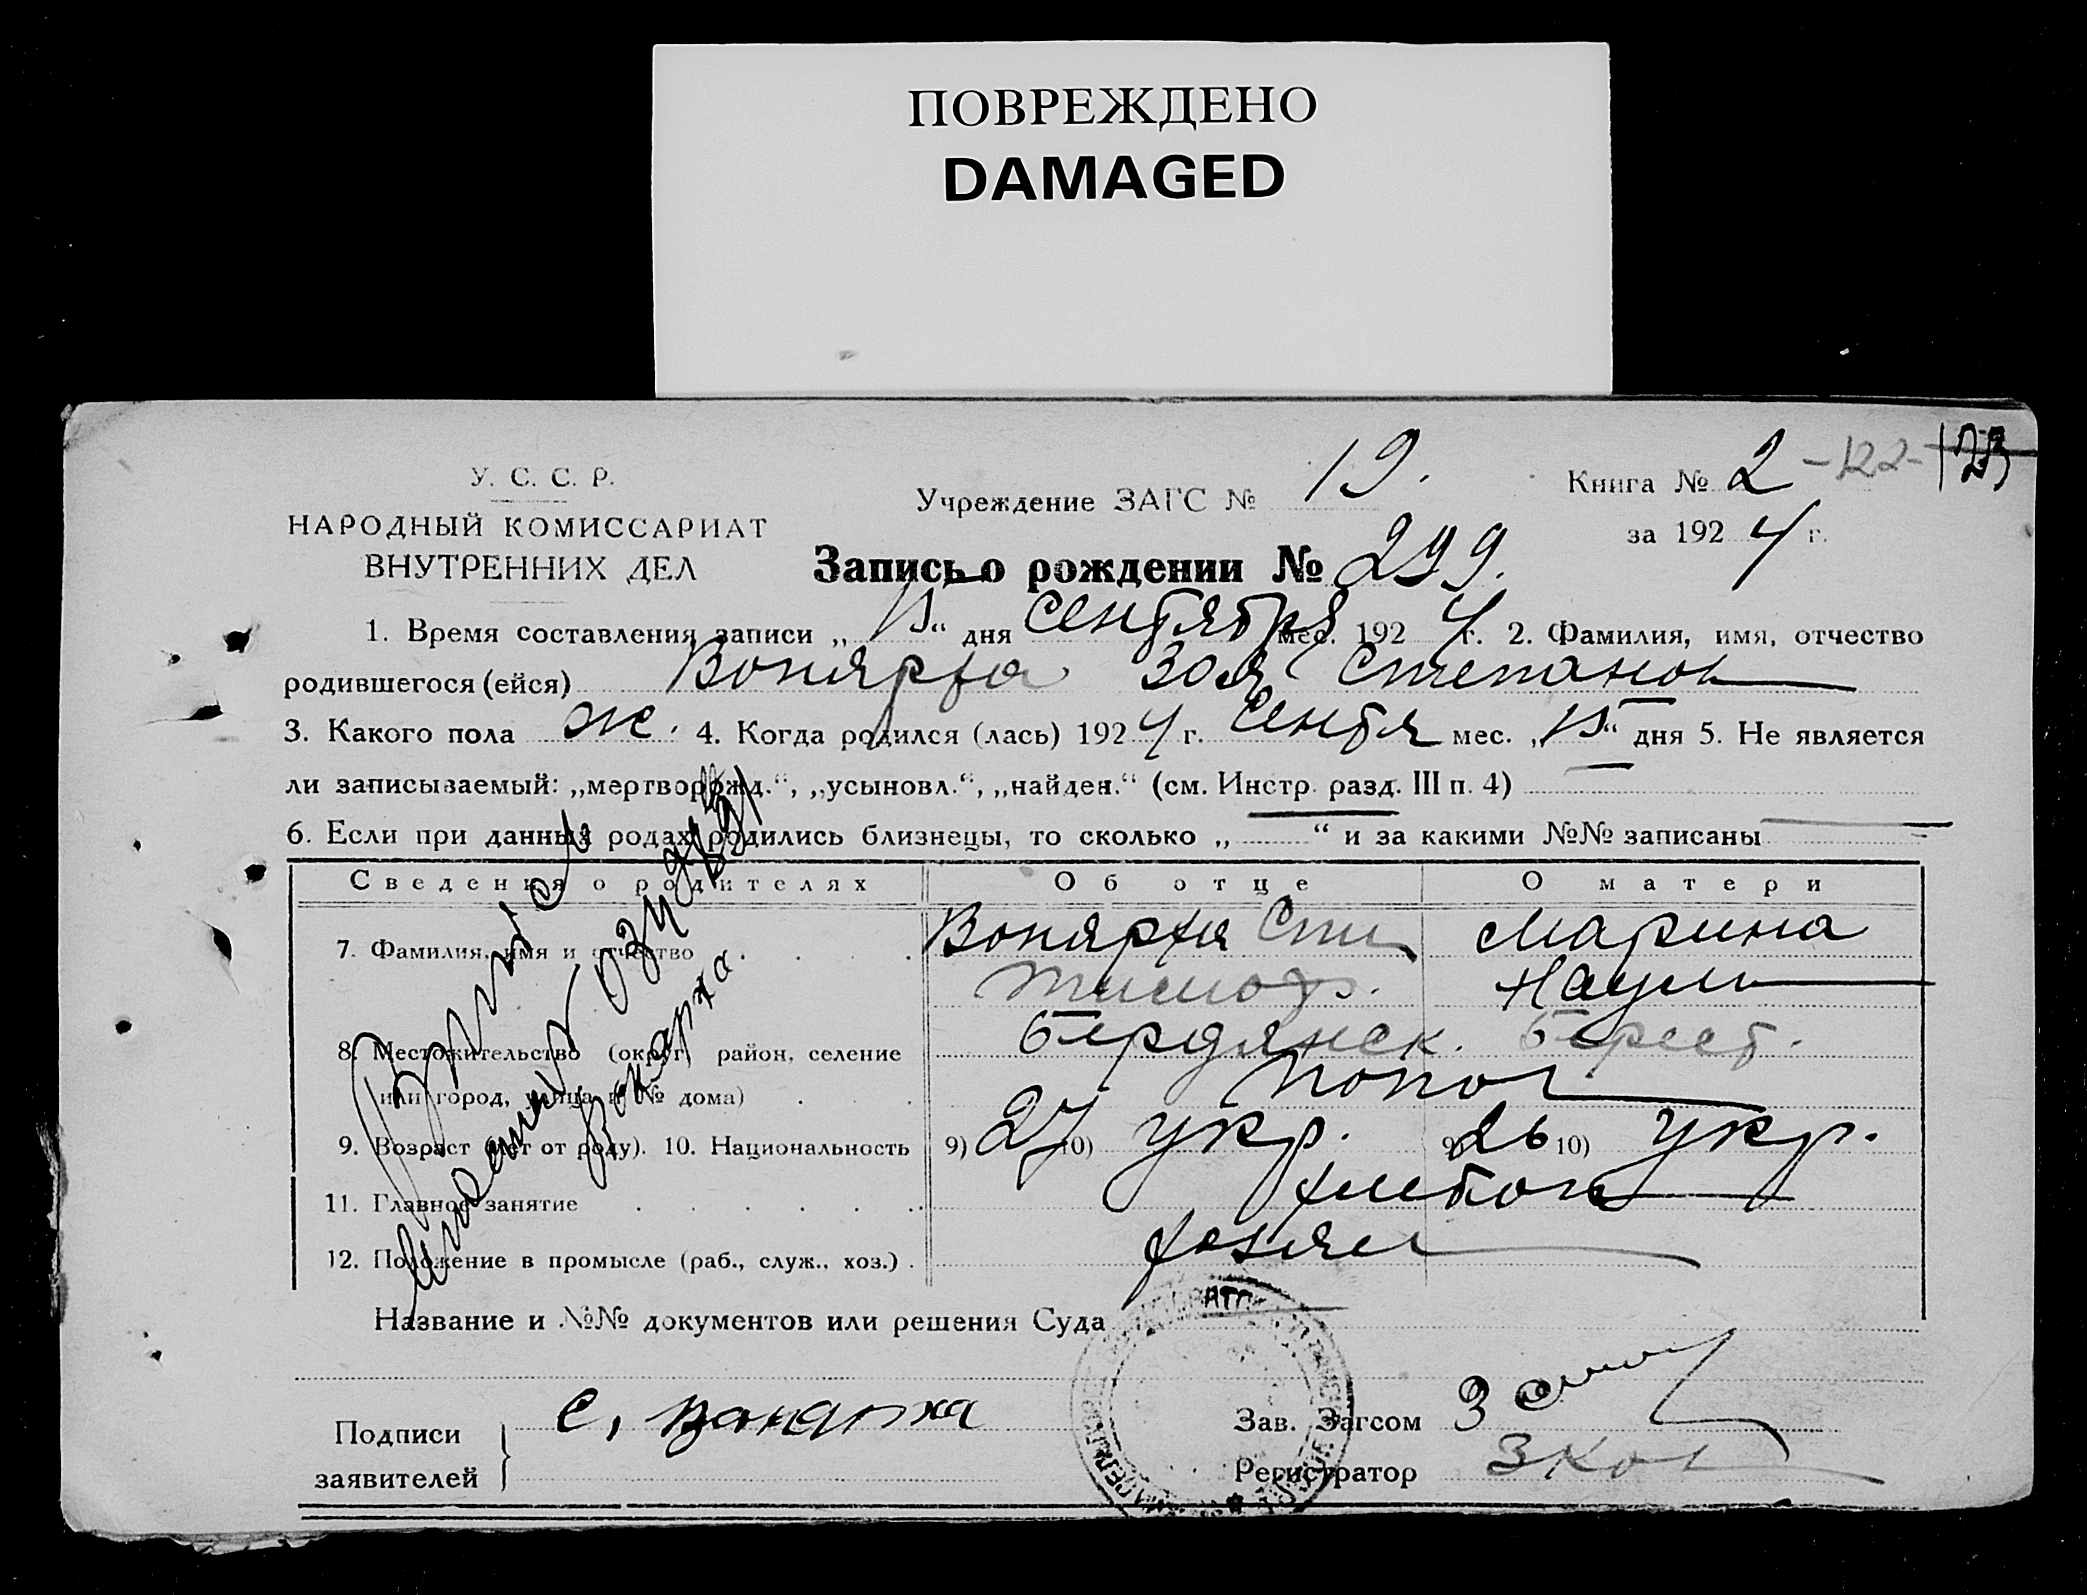 ПОВРЕЖДЕНО
DAMAGED
У. С. С. Р.
НАРОДНЫЙ КОМИССАРИАТ
ВНУТРЕННИХ ДЕЛ
Учреждение ЗАГС № 19.
Книга № 2 -122- 123
за 1924 г.
Запись о рождении № 299.
1. Время составления записи „15“ дня Сентября мес. 1924 г. 2. Фамилия, имя, отчество
родившегося (ейся) Вопярха Зоя Степанов
3. Какого пола ж. 4. Когда родился (лась) 1924 г. Сентя мес. „15“ дня 5. Не является
ли записываемый: „мертворожд.“, „усыновл.“, „найден.“ (см. Инстр. разд. III п. 4)
6. Если при данных родах родились близнецы, то сколько „ “ и за какими №№ записаны
Сведения о родителях Об отце О матери
7. Фамилия, имя и отчество Вопярха Сте Марина
Тимоф. Наум
8. Местожительство (округ, район, селение Бердянск. Берест.
или город, улица и № дома) Попов
9. Возраст (лет от роду). 10. Национальность 9) 27 10) укр. 9) 26 10) укр.
11. Главное занятие хлебоп
12. Положение в промысле (раб., служ., хоз.) хозяи
Название и №№ документов или решения Суда
Подписи заявителей С,
Зав. Загсом
Регистратор